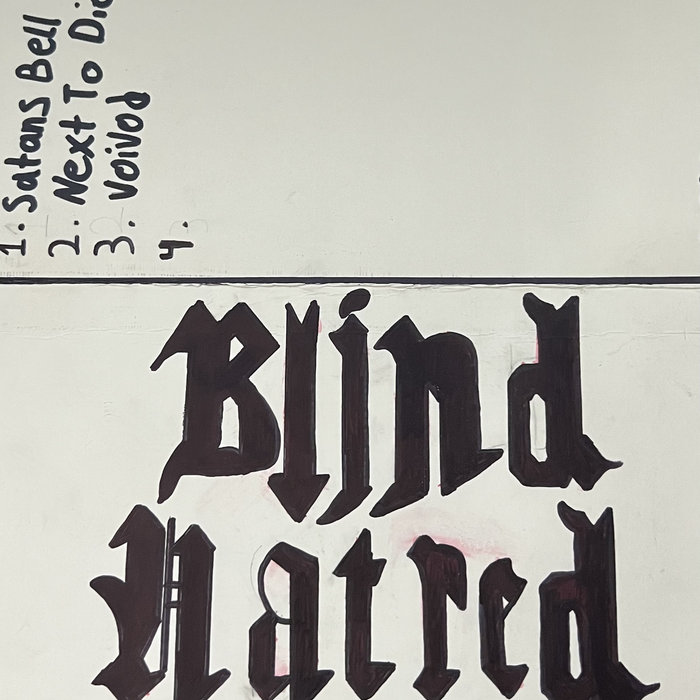 1. Satans Bell
2. Next To Die
3. Voivod
4.
Blind
Hatred